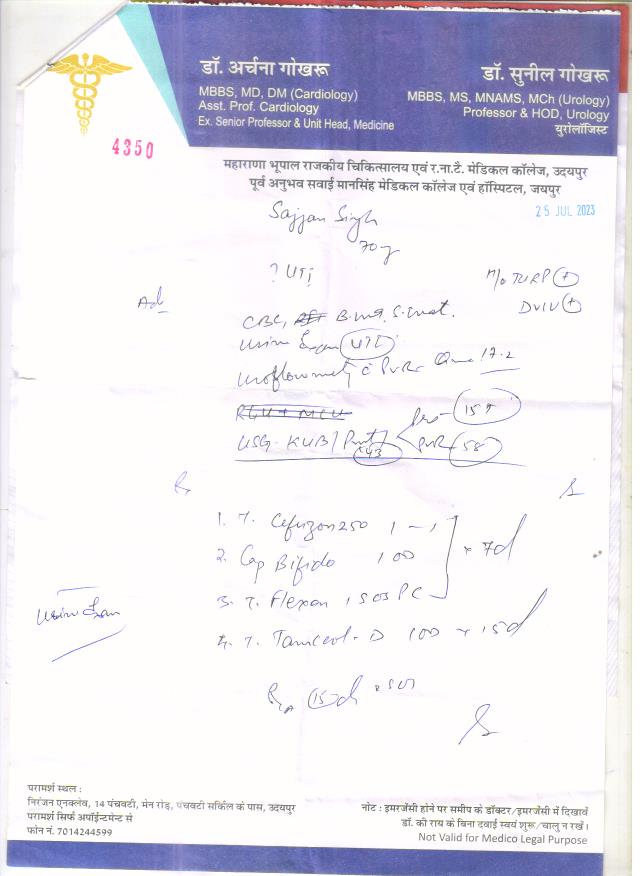 डॉ. अर्चना गोखरू
MBBS, MD, DM (Cardiology)
Asst. Prof. Cardiology
Ex. Senior Professor & Unit Head, Medicine
डॉ. सुनील गोखरू
MBBS, MS, MNAMS, MCh (Urology)
Professor & HOD, Urology
यूरोलॉजिस्ट
4350
महाराणा भूपाल राजकीय चिकित्सालय एवं र.ना.टै. मेडिकल कॉलेज, उदयपुर
पूर्व अनुभव सवाई मानसिंह मेडिकल कॉलेज एवं हॉस्पिटल, जयपुर
25 JUL 2023
Sajjan Singh
70y
? UTI
H/o TURP (+)
DVIU (+)
Adv
CBC, B. Urea, S. Creat.
Urine Exam
Uroflowmetry c PVR Qmax 17.2
RGU + MCU
USG- KUB/Prost/
Pre-
PVR- 58
43
Rx
1. T. Cefuzon 250 1-1
2. Cap Bifido
x 7d
3. T. Flexon
4. T. D x 15d
Urine Exam
15d
परामर्श स्थल :
निरंजन एनक्लेव, 14 पंचवटी, मेन रोड़, पंचवटी सर्किल के पास, उदयपुर
परामर्श सिर्फ अपॉईन्टमेन्ट से
फोन नं. 7014244599
नोट : इमरजेंसी होने पर समीप के डॉक्टर/इमरजेंसी में दिखावें
डॉ. की राय के बिना दवाई स्वयं शुरू/चालु न रखें।
Not Valid for Medico Legal Purpose